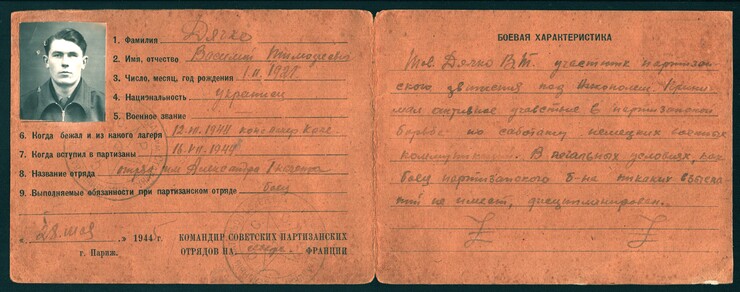 1. Фамилия Дячко
2. Имя, отчество Василий Тимофеевич
3. Число, месяц, год рождения 1.II.1921
4. Национальность украинец
5. Военное звание
6. Когда бежал и из какого лагеря 12.VII.1944
7. Когда вступил в партизаны 16.VII.1944
8. Название отряда отряд им Александра
9. Выполняемые обязанности при партизанском отряде боец
„28“ мая 1944
г. Париж.
КОМАНДИР СОВЕТСКИХ ПАРТИЗАНСКИХ
ОТРЯДОВ НА ФРАНЦИИ
БОЕВАЯ ХАРАКТЕРИСТИКА
Тов Дячко В.Т. участник партизан
ского движения под
мал активное участие в партизанской
борьбе по саботажу немецких военных
коммуникаций. В легальных условиях, как
боец партизанского б-на никаких взыска
ний не имел, дисциплинирован.